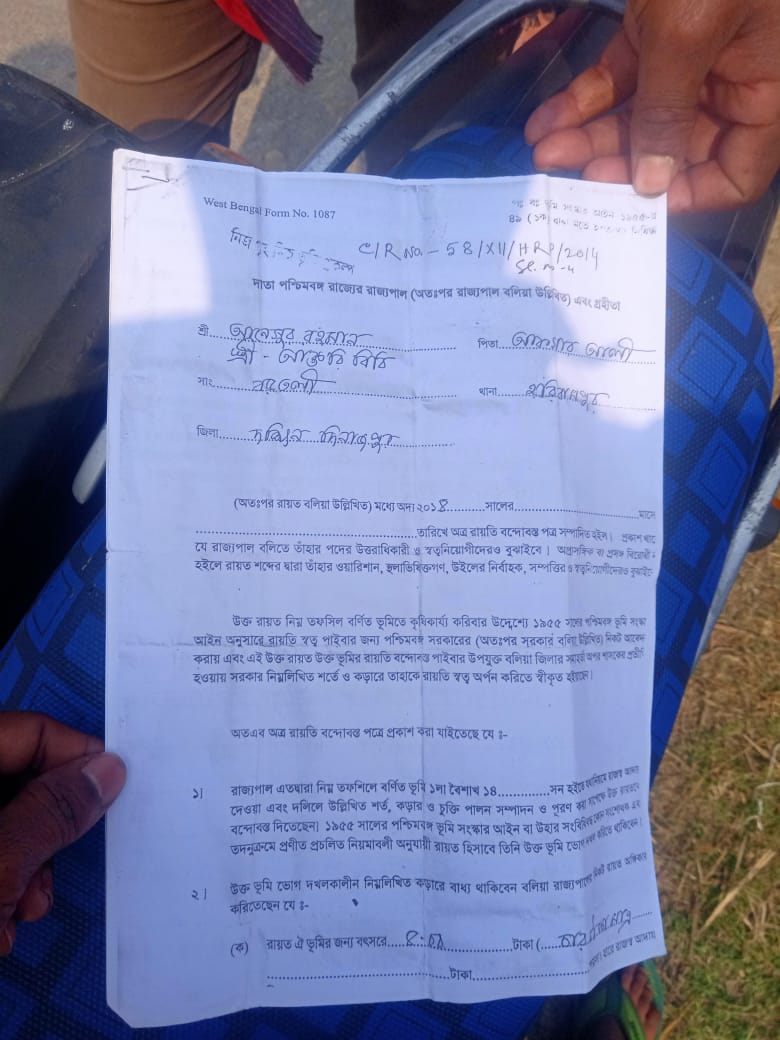 West Bengal Form No. 1087
পঃ বঃ ভূমি সংস্কার আইন ১৯৫৫-র
৪৯ (১ক) ধারা মতে
নিজ গৃহ নিজ ভূমি প্রকল্প
C/R No. - 58/XII/HRP/2014
Sl. no - 4
দাতা পশ্চিমবঙ্গ রাজ্যের রাজ্যপাল (অতঃপর রাজ্যপাল বলিয়া উল্লিখিত) এবং গ্রহীতা
শ্রী....আনেসুর রহমান.... পিতা....আনসার আলী
স্ত্রী - আক্তারি বিবি
সাং.... থানা....হরিরামপুর
জিলা....দক্ষিন দিনাজপুর....
(অতঃপর রায়ত বলিয়া উল্লিখিত) মধ্যে অদ্য ২০১৪..........সালের..............................মাসে
................................................তারিখে অত্র রায়তি বন্দোবস্ত পত্র সম্পাদিত হইল। প্রকাশ থাকে
যে রাজ্যপাল বলিতে তাঁহার পদের উত্তরাধিকারী ও স্বত্বনিয়োগীদেরও বুঝাইবে। অপ্রাসঙ্গিক বা প্রসঙ্গ বিরোধী
হইলে রায়ত শব্দের দ্বারা তাঁহার ওয়ারিশান, স্থলাভিষিক্তগণ, উইলের নির্বাহক, সম্পত্তির ও স্বত্বনিয়োগীদেরও বুঝাইবে
উক্ত রায়ত নিম্ন তফসিল বর্ণিত ভূমিতে কৃষিকার্য্য করিবার উদ্দেশ্যে ১৯৫৫ সালের পশ্চিমবঙ্গ ভূমি সংস্কা
আইন অনুসারে রায়তি স্বত্ব পাইবার জন্য পশ্চিমবঙ্গ সরকারের (অতঃপর সরকার বলিয়া উল্লিখিত) নিকট আবেদন
করায় এবং এই উক্ত রায়ত উক্ত ভূমির রায়তি বন্দোবস্ত পাইবার উপযুক্ত বলিয়া জিলার সমাহর্তা অপর শাসকের প্রতীতি
হওয়ায় সরকার নিম্নলিখিত শর্তে ও কড়ারে তাহাকে রায়তি স্বত্ব অর্পন করিতে স্বীকৃত হইয়াছেন।
অতএব অত্র রায়তি বন্দোবস্ত পত্রে প্রকাশ করা যাইতেছে যে ঃ-
১। রাজ্যপাল এতদ্বারা নিম্ন তফশিলে বর্ণিত ভূমি ১লা বৈশাখ ১৪..............সন হইতে যথানিয়মে রাজস্ব আদায়
দেওয়া এবং দলিলে উল্লিখিত শর্ত, কড়ার ও চুক্তি পালন সম্পাদন ও পূরণ করা সাপেক্ষে উক্ত রায়তকে
বন্দোবস্ত দিতেছেন। ১৯৫৫ সালের পশ্চিমবঙ্গ ভূমি সংস্কার আইন বা উহার সংবিধিবদ্ধ কোন সংশোধক এবং
তদনুক্রমে প্রণীত প্রচলিত নিয়মাবলী অনুযায়ী রায়ত হিসাবে তিনি উক্ত ভূমি ভোগ দখল করিতে থাকিবেন।
২। উক্ত ভূমি ভোগ দখলকালীন নিম্নলিখিত কড়ারে বাধ্য থাকিবেন বলিয়া রাজ্যপালের নিকট রায়ত অঙ্গিকার
করিতেছেন যে ঃ-
(ক) রায়ত ঐ ভূমির জন্য বৎসরে.................টাকা (....
................................................টাকা................................ হারে রাজস্ব আদায়